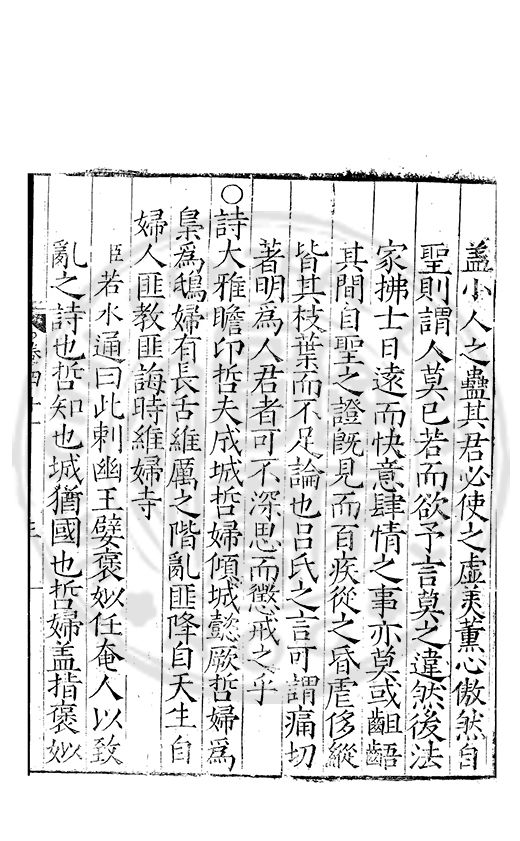 盖小人之蠱其君必使之虛美薰心傲然自
聖則謂人莫已若而欲予言莫之違然後法
家拂士日遠而快意肆情之事亦莫或齟齬
其間自聖之證既見而百疾從之昏虐侈縱
皆其枝葉而不足論也吕氏之言可謂痛切
著明為人君者可不深思而懲戒之乎
○詩大雅瞻卬哲夫成城哲婦傾城懿厥哲婦為
梟為鴟婦有長舌維厲之階亂匪降自天生自
婦人匪教匪誨時維婦寺
臣若水通曰此刺幽王嬖褒姒任奄人以致
亂之詩也哲知也城猶國也哲婦盖指褒姒
卷四十一